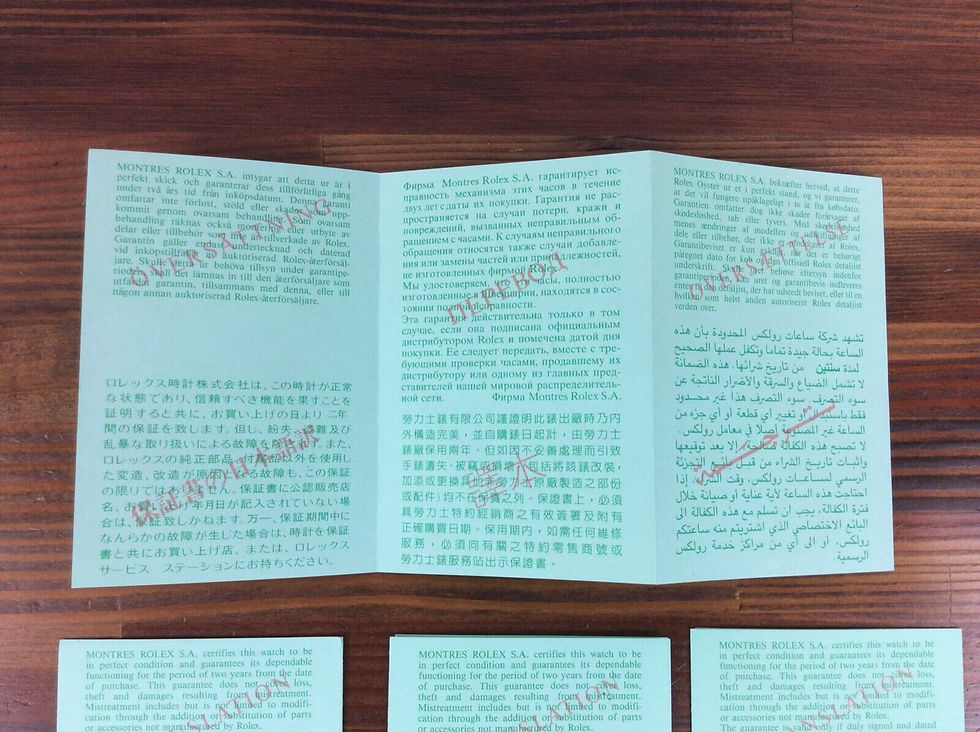 MONTRES ROLEX S.A. intygar att detta ur är i
perfekt skick och garanterar dess tillförlitliga gång
under två års tid från inköpsdatum. Denna garanti
omfattar inte förlust, stöld eller skador som upp-
kommit genom ovarsam behandling. Som ovarsam
behandling räknas också montering eller utbyte av
delar eller tillbehör som inte är tillverkade av Rolex.
Garantin gäller endast undertecknad och daterad
vid inköpstillfället av auktoriserad Rolex-återförsäl-
jare. Skulle Ert ur behöva tillsyn under garantipe-
rioden bör det lämnas in till den återförsäljare som
utfärdat garantin, tillsammans med denna, eller till
någon annan auktoriserad Rolex-återförsäljare.
ÖVERSÄTTNING
ロレックス時計株式会社は、この時計が正常
な状態であり、信頼すべき機能を果すことを
証明すると共に、お買い上げの日より 二年
間の保証を致します。但し、紛失、盗難及び
乱暴な取り扱いによる故障を除きます。また、
ロレックスの純正部品、付属品以外を使用し
た変造、改造が原因による故障も、この保証
の限りではありません。保証書に公認販売店
名、お買い上げ年月日が記入されていない場
合は、保証致しかねます。万一、保証期間中に
なんらかの故障が生じた場合は、時計を保証
書と共にお買い上げ店、または、ロレックス
サービス ステーションにお持ちください。
保証書の日本語訳
Фирма Montres Rolex S.A. гарантирует ис-
правность механизма этих часов в течение
двух лет с даты их покупки. Гарантия не рас-
пространяется на случаи потери, кражи и
повреждений, вызванных неправильным об-
ращением с часами. К случаям неправильного
обращения относятся также случаи добавле-
ния или замены частей или принадлежностей,
не изготовленных фирмой Rolex.
Мы удостоверяем, что эти часы, полностью
изготовленные в Швейцарии, находятся в сос-
тоянии полной исправности.
Эта гарантия действительна только в том
случае, если она подписана официальным
дистрибутором Rolex и помечена датой дня
покупки. Ее следует передать, вместе с тре-
бующими проверки часами, продавшему их
дистрибутору или одному из главных пред-
ставителей нашей мировой распределитель-
ной сети. Фирма Montres Rolex S.A.
ПЕРЕВОД
勞力士錶有限公司謹證明此錶出廠時乃內
外構造完美，並自購錶日起計，由勞力士
錶廠保用兩年。但如因不妥善處理而引致
手錶遺失、被竊或損壞，包括將該錶改裝，
加添或更換其他非勞力士原廠製造之部份
或配件）均不在保養之列。保證書上，必須
具勞力士特約經銷商之有效簽署及附有
正確購買日期。保用期內，如需任何維修
服務，必須向有關之特約零售商號或
勞力士錶服務站出示保證書。
譯本
MONTRES ROLEX S.A. bekræfter herved, at dette
Rolex Oyster ur er i perfekt stand, og vi garanterer,
at det vil fungere upåklageligt i to år fra købsdato.
Garantien omfatter dog ikke skader forårsaget af
skødesløshed, tab eller tyveri. Med skødesløshed
menes ændringer af modellen og
dele eller tilbehør, der ikke er af Rolex.
Garantibeviset er kun gyldigt, når det er behørigt
påtegnet dato for købet og en officiel Rolex detaljist
underskrift. behøve eftersyn indenfor
garantiperioden, kan uret og garantibevis indleveres
enten til den detaljist, der har udstedt beviset, eller til en
hvilken som helst anden autoriseret Rolex detaljist
verden over.
OVERSÆTTELSE
تشهد شركة ساعات رولكس المحدودة بأن هذه
الساعة بحالة جيدة تماماً وتكفل عملها الصحيح
لمدة سنتين من تاريخ شرائها. هذه الضمانة
لا تشمل الضياع والسرقة والأضرار الناتجة عن
سوء التصرف. سوء التصرف هذا غير محدود
فقط باستبدال أو تغيير أي قطعة أو أي جزء من
الساعة غير المصنوعة أصلاً في معامل رولكس.
لا تصبح هذه الكفالة صالحة إلا بعد توقيعها
واثبات تاريخ الشراء من قبل بائع التجزئة
الرسمي لساعات رولكس، وقت الشراء. إذا
احتاجت هذه الساعة لأية عناية أو صيانة خلال
فترة الكفالة، يجب ان تسلم مع هذه الكفالة الى
البائع الاختصاصي الذي اشتريتم منه ساعتكم
رولكس، أو الى أي من مراكز خدمة رولكس
الرسمية.
ترجمة
MONTRES ROLEX S.A. certifies this watch to be
in perfect condition and guarantees its dependable
functioning for the period of two years from the date
of purchase. This guarantee does not cover loss,
theft and damages resulting from mistreatment.
Mistreatment includes but is not limited to modifi-
cation through the addition or substitution of parts
or accessories not manufactured by Rolex.
MONTRES ROLEX S.A. certifies this watch to be
in perfect condition and guarantees its dependable
functioning for the period of two years from the date
of purchase. This guarantee does not cover loss,
theft and damages resulting from mistreatment.
Mistreatment includes but is not limited to modifi-
cation through the addition or substitution of parts
or accessories not manufactured by Rolex.
MONTRES ROLEX S.A. certifies this watch to be
in perfect condition and guarantees its dependable
functioning for the period of two years from the date
of purchase. This guarantee does not cover loss,
theft and damages resulting from mistreatment.
Mistreatment includes but is not limited to modifi-
cation through the addition or substitution of parts
or accessories not manufactured by Rolex.
The guarantee is valid only if duly signed and dated